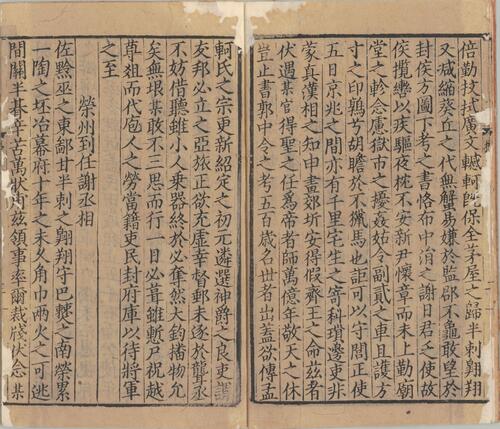 倍勤拔拭廣文轗軻曁保全茅屋之歸半刺翺翔
又减縮葵丘之代無觧易嫌於監郤不龜敢望於
封侯方圖下考之書恪布中涓之謝日君壬使故
侯攬轡以疾驅夜枕不安新尹懷章而未上勒廟
堂之軫念慮獄市之擾姦姑令副貳之車且護方
寸之印鶉兮胡瞻於不獵馬也詎可以守閭正使
五日京兆之間亦有千里宅生之寄科瑣邊吏非
蒙真漢相之知申畫郊圻安得假齊王之命兹者
伏遇某官得聖之任爲帝者師萬億年敬天之休
豈止書郭中令之考五百歳名世者出蓋欲傳孟
軻氏之宗更新紹定之初元遴選神爵之良吏謂
交邦必立之亞旅正欲充虚幸督郵未遂於聾丞
不妨借聽雖小人乗器終於必奪然大鈞播物允
矣無垠某敢不三思而行一日必葺雖慙尸祝越
尊俎而代庖人之勞當籍吏民封府庫以待將軍
之至
榮州到任謝丞相
佐黔巫之東鄙甘半刺之翺翔守巴䝤之南榮累
一陶之坯冶幕府十年之未久角巾兩火之可逃
間關半朞辛苦萬狀甫兹領事率爾裁牋伏念某